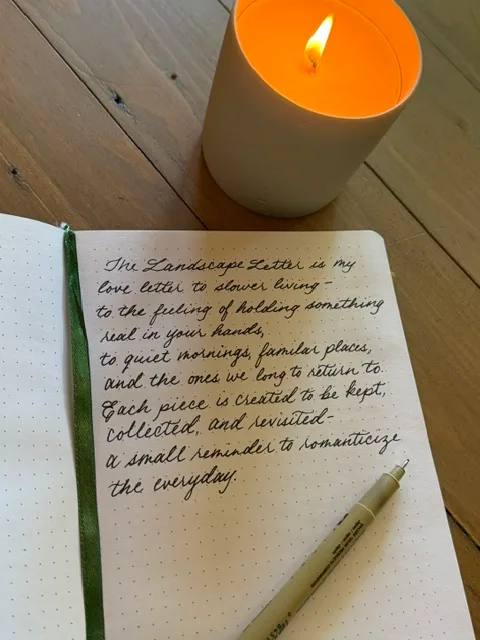 The Landscape Letter is my
love letter to slower living–
to the feeling of holding something
real in your hands,
to quiet mornings, familar places,
and the ones we long to return to.
Each piece is created to be kept,
collected, and revisited–
a small reminder to romanticize
the everyday.